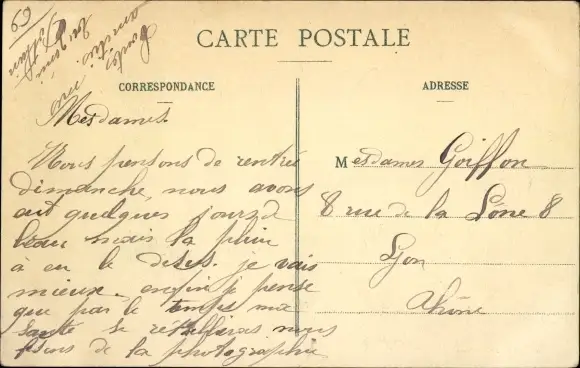 CARTE POSTALE
CORRESPONDANCE
ADRESSE
Mesdames
Nous pensons de rentré
dimanche, nous avons
out quelques jours de
beau mais la pluie
à eu le desus. je vais
mieux. enfin je pense
que par le temps ma
santé se retablieras nous
de la photographie
Mesdames Goiffon
8 rue de la Lône 8
Lyon
Rhône
69
amitiés